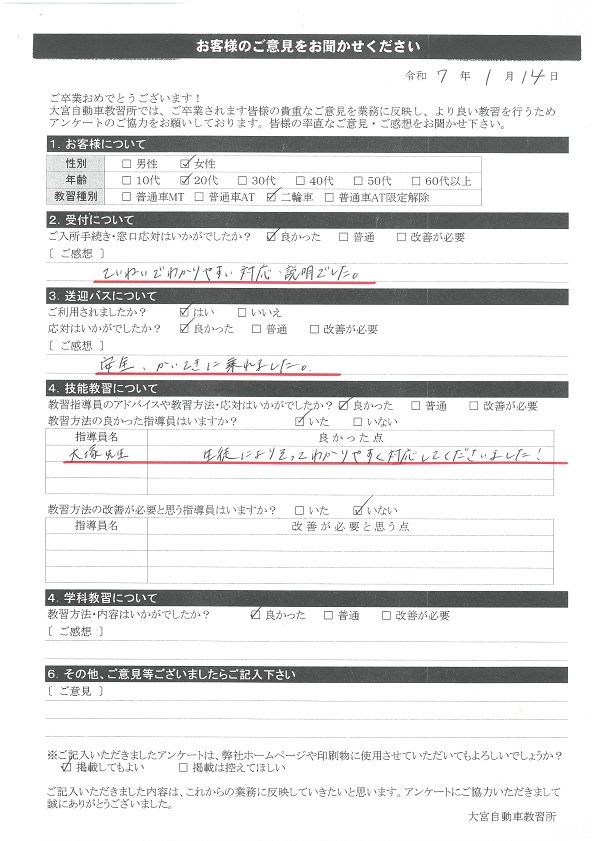 お客様のご意見をお聞かせください
令和 7 年 1 月 14 日
ご卒業おめでとうございます！
大宮自動車教習所では、ご卒業されます皆様の貴重なご意見を業務に反映し、より良い教習を行うため
アンケートのご協力をお願いしております。皆様の率直なご意見・ご感想をお聞かせ下さい。
1. お客様について
性別 □男性 ☑女性
年齢 □10代 ☑20代 □30代 □40代 □50代 □60代以上
教習種別 □普通車MT □普通車AT ☑二輪車 □普通車AT限定解除
2. 受付について
ご入所手続き・窓口応対はいかがでしたか？ ☑良かった □普通 □改善が必要
〔 ご感想 〕
ていねいでわかりやすい対応・説明でした。
3. 送迎バスについて
ご利用されましたか？ ☑はい □いいえ
応対はいかがでしたか？ ☑良かった □普通 □改善が必要
〔 ご感想 〕
安全、かいてきに乗れました。
4. 技能教習について
教習指導員のアドバイスや教習方法・応対はいかがでしたか？ ☑良かった □普通 □改善が必要
教習方法の良かった指導員はいますか？ ☑いた □いない
指導員名 良かった点
大塚先生 生徒によりそってわかりやすく対応してくださいました！
教習方法の改善が必要と思う指導員はいますか？ □いた ☑いない
指導員名 改善が必要と思う点
4. 学科教習について
教習方法・内容はいかがでしたか？ ☑良かった □普通 □改善が必要
〔 ご感想 〕
6. その他、ご意見等ございましたらご記入下さい
〔 ご意見 〕
※ご記入いただきましたアンケートは、弊社ホームページや印刷物に使用させていただいてもよろしいでしょうか？
☑掲載してもよい □掲載は控えてほしい
ご記入いただきました内容は、これからの業務に反映していきたいと思います。アンケートにご協力いただきまして
誠にありがとうございました。
大宮自動車教習所